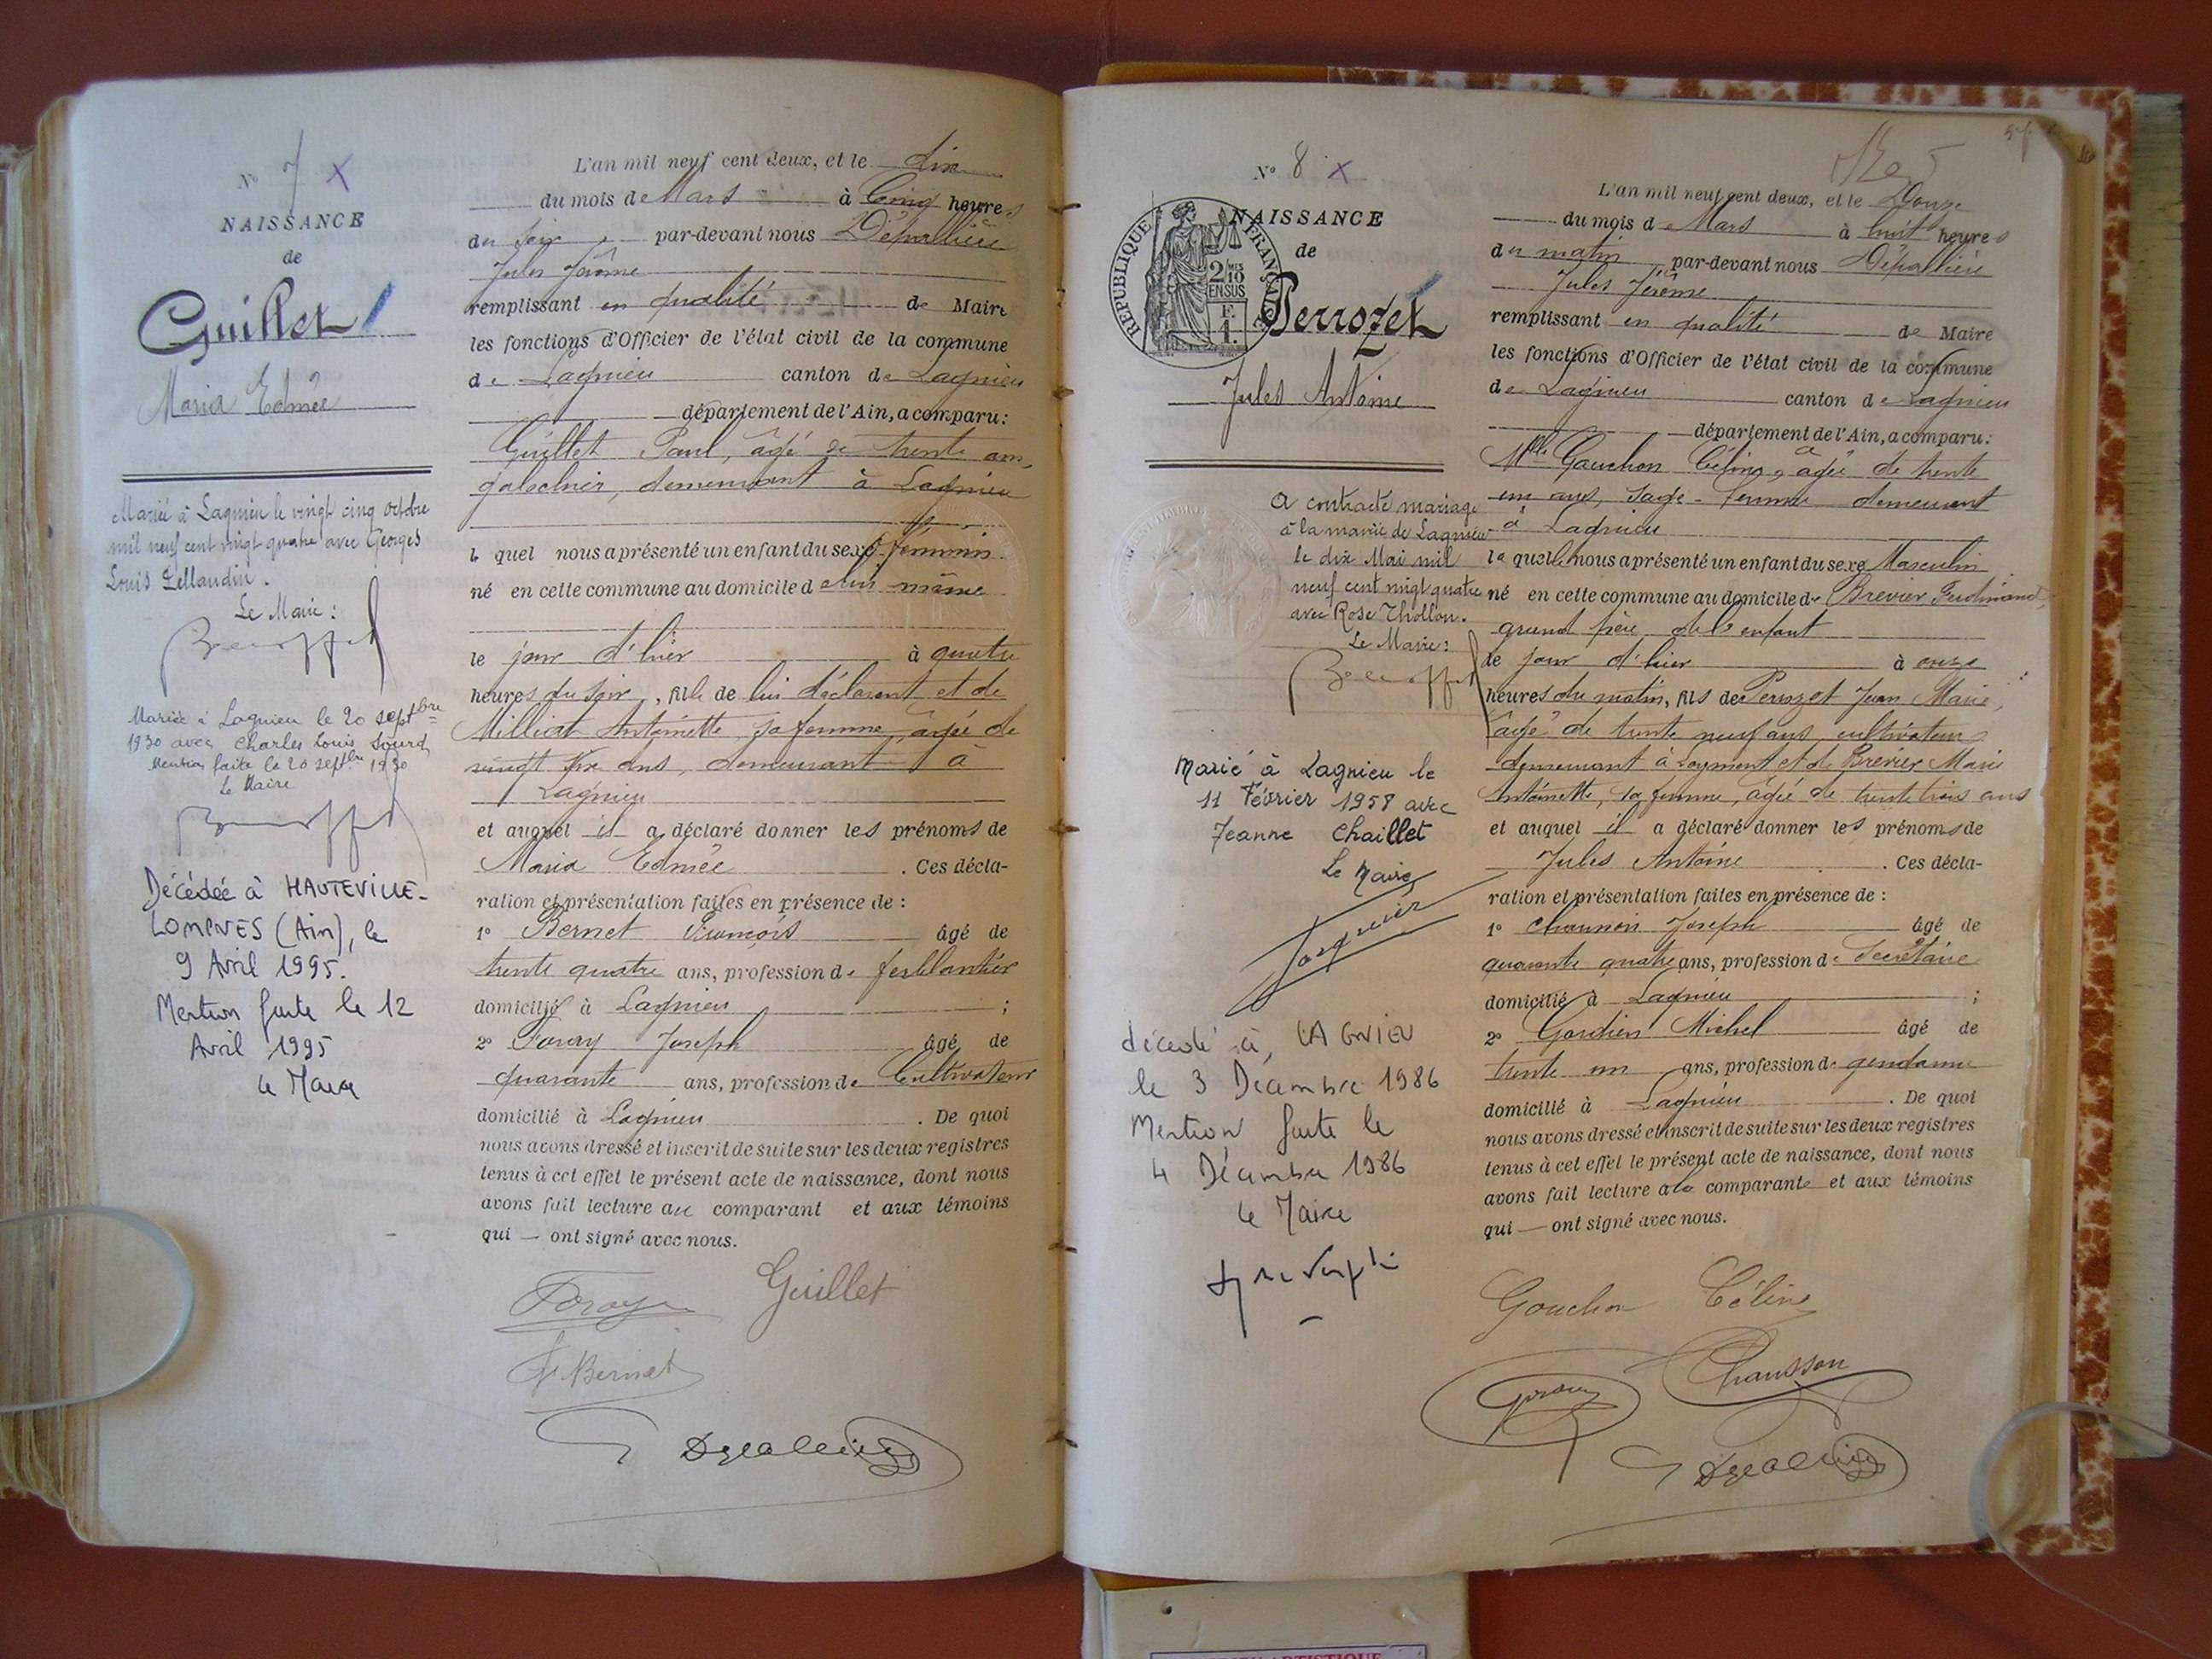 N° 7 X
NAISSANCE
de
Guillet
Maria Edmée
Mariée à Lagnieu le vingt cinq octobre
mil neuf cent vingt quatre avec Georges
Louis
Le Maire :
Mariée à Lagnieu le 20 septbre
1930 avec Charles Louis Sourd
Mention faite le 20 septbre 1930
Le Maire
Décédée à HAUTEVILLE-
LOMPNES (Ain), le
9 Avril 1995.
Mention faite le 12
Avril 1995
Le Maire
L'an mil neuf cent deux, et le dix
du mois de Mars à Cinq heures
du soir par-devant nous Dépallière
Jules Jérôme
remplissant en qualité de Maire
les fonctions d'Officier de l'état civil de la commune
de Lagnieu canton de Lagnieu
département de l'Ain, a comparu :
Guillet Paul, âgé de trente ans,
demeurant à Lagnieu
le quel nous a présenté un enfant du sexe féminin
né en cette commune au domicile de lui même
le jour d'hier à quatre
heures du soir, fille de lui déclarant et de
Milliat Antoinette, sa femme, âgée de
vingt six ans, demeurant à
Lagnieu
et auquel il a déclaré donner les prénoms de
Maria Edmée . Ces décla-
ration et présentation faites en présence de :
1° Bernet François âgé de
trente quatre ans, profession de ferblantier
domicilié à Lagnieu ;
2° Foray Joseph âgé de
quarante ans, profession de Cultivateur
domicilié à Lagnieu . De quoi
nous avons dressé et inscrit de suite sur les deux registres
tenus à cet effet le présent acte de naissance, dont nous
avons fait lecture au comparant et aux témoins
qui — ont signé avec nous.
Foray Guillet
F Bernet
N° 8 X
NAISSANCE
de
REPUBLIQUE FRANÇAISE
2/10 MES
EN SUS
F.
1.
Perrozet
Jules Antoine
A contracté mariage
à la mairie de Lagnieu
le dix Mai mil
neuf cent vingt quatre
avec Rose Thollon.
Le Maire :
Marié à Lagnieu le
11 Février 1958 avec
Jeanne Chaillet
Le Maire,
décédé à LAGNIEU
le 3 Décembre 1986
Mention faite le
4 Décembre 1986
Le Maire
L'an mil neuf cent deux, et le Douze
du mois de Mars à huit heures
du matin par-devant nous Dépallière
Jules Jérôme
remplissant en qualité de Maire
les fonctions d'Officier de l'état civil de la commune
de Lagnieu canton de Lagnieu
département de l'Ain, a comparu :
Mlle Gauchon Céline, âgée de trente
un ans, sage-femme demeurant
à Lagnieu
la quelle nous a présenté un enfant du sexe Masculin
né en cette commune au domicile de Brevier Ferdinand,
grand père de l'enfant
le jour d'hier à onze
heures du matin, fils de Perrozet Jean Marie,
âgé de trente neuf ans, cultivateur
demeurant à Leyment et de Brevier Marie
Antoinette, sa femme, âgée de trente trois ans
et auquel il a déclaré donner les prénoms de
Jules Antoine . Ces décla-
ration et présentation faites en présence de :
1° Chausson Joseph âgé de
quarante quatre ans, profession de Secrétaire
domicilié à Lagnieu ;
2° Gordien Michel âgé de
trente un ans, profession de gendarme
domicilié à Lagnieu . De quoi
nous avons dressé et inscrit de suite sur les deux registres
tenus à cet effet le présent acte de naissance, dont nous
avons fait lecture à la comparante et aux témoins
qui — ont signé avec nous.
Gouchon Céline
Chausson